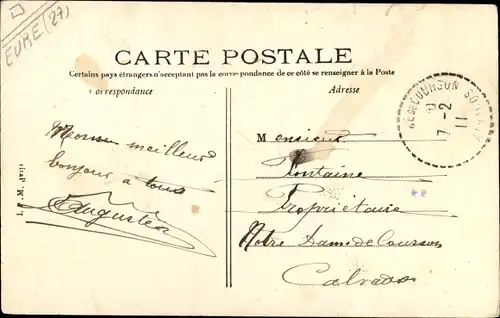 EURE (27)
CARTE POSTALE
Certains pays étrangers n'acceptant pas la correspondance de ce côté se renseigner à la Poste
Correspondance
Adresse
COURSON
7-2
11
Monsieur
Fontaine
Propriétaire
Notre Dame de Courson
Calvados
meilleur
bonjour a tous
Augustea